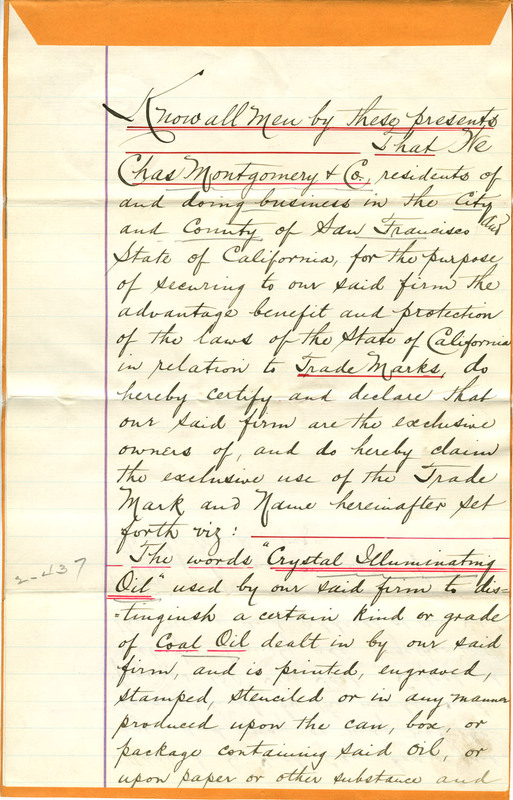 Know all Men by these presents
That We
Chas Montgomery & Co. residents of
and doing business in the City
and County of San Francisco and
State of California, for the purpose
of securing to our said firm the
advantage benefit and protection
of the laws of the State of California
in relation to Trade Marks, do
hereby certify and declare that
our said firm are the exclusive
owners of, and do hereby claim
the exclusive use of the Trade
Mark and Name hereinafter set
forth viz:
The words "Crystal Illuminating
Oil" used by our said firm to dis=
=tinguish a certain kind or grade
of Coal Oil dealt in by our said
firm, and is printed, engraved,
stamped, stenciled or in any manner
produced upon the can, box, or
package containing said oil, or
upon paper or other substance and
2-437